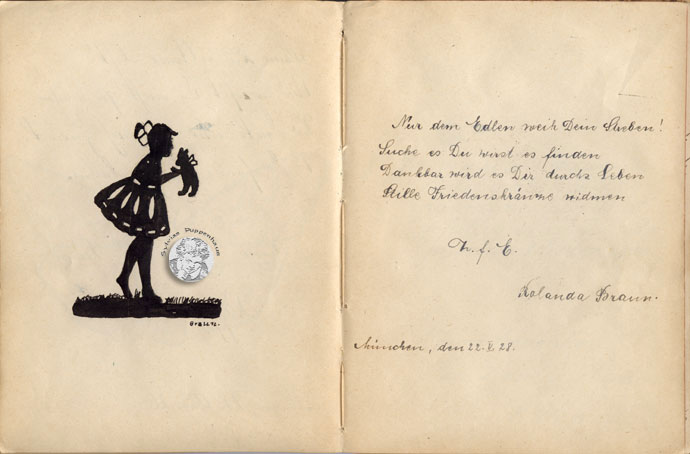 Sylvias Puppenhaus
Braun.
Nur dem Edlen weih Dein Streben!
Suche es Du wirst es finden
Dankbar wird es Dir durchs Leben
Stille Friedenskränze widmen
Z. f. E.
Rolanda Braun.
München, den 22. X. 28.